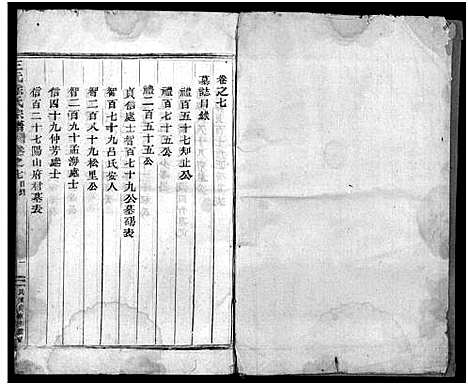 卷之七
墓誌目錄
禮百五十七知止公
禮百七十五公
禮二百五十五公
貞信處士智百七十九公墓碣表
智百七十九呂氏安人
智二百八十九松里公
智二百九十孟海處士
信四十九仲芳處士
信百二十七陽山府君墓表
氏宗譜 卷之七 目錄